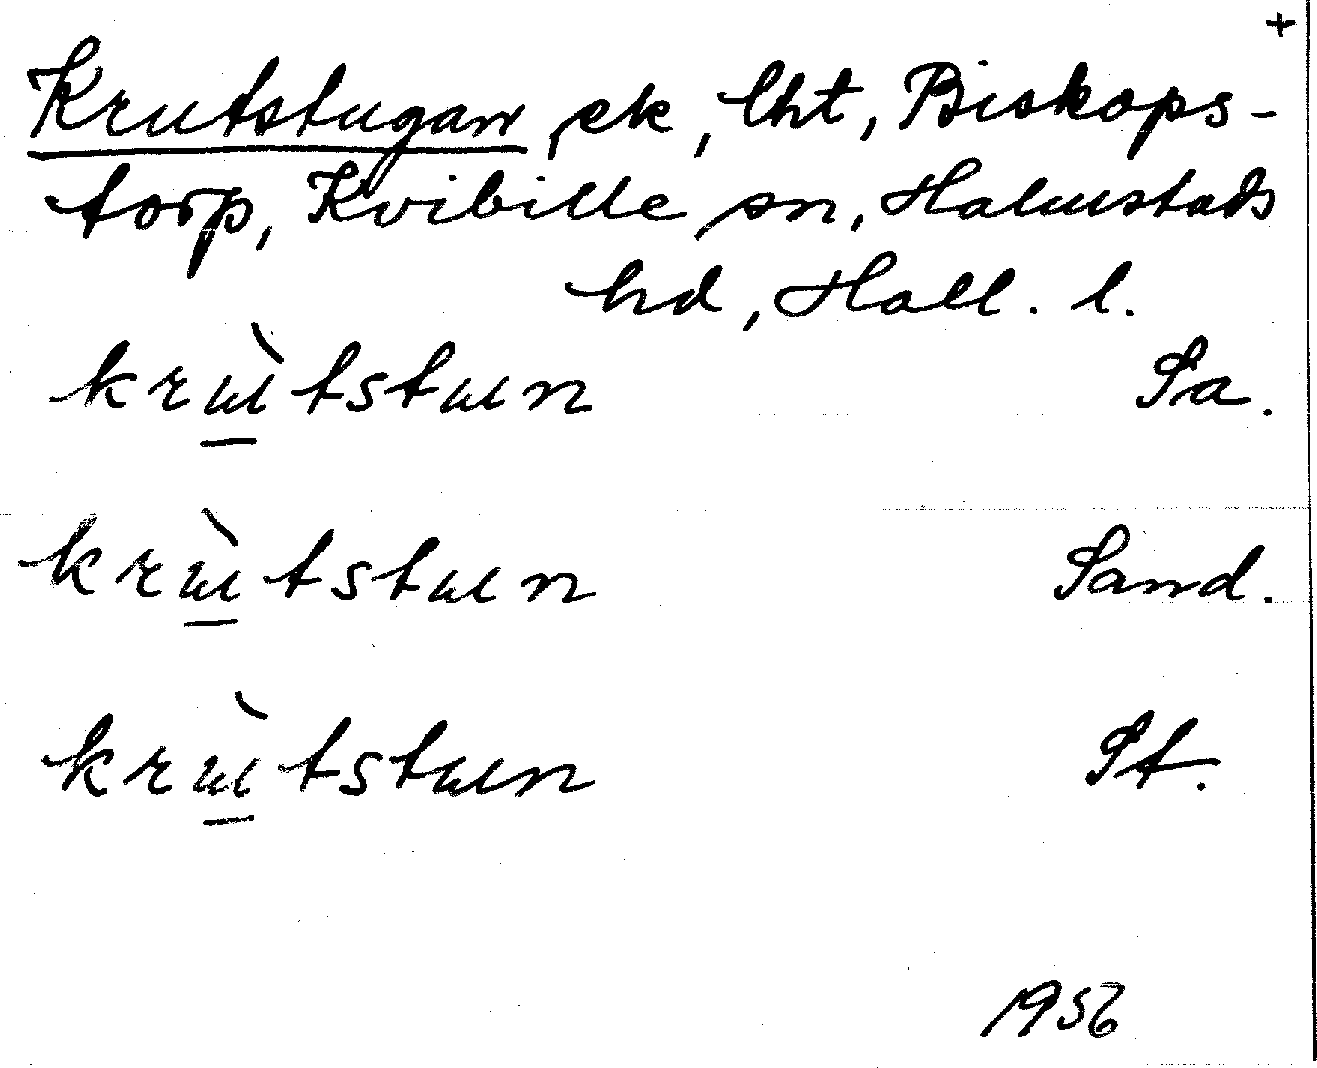 +
Krutstugan, ek, lht, Biskops-
torp, Kvibille sn, Halmstads
hd, Hall. l.
krɯ̀tstɯn Sa.
krɯ̀tstɯn Sand.
krɯ̀tstɯn St.
1956